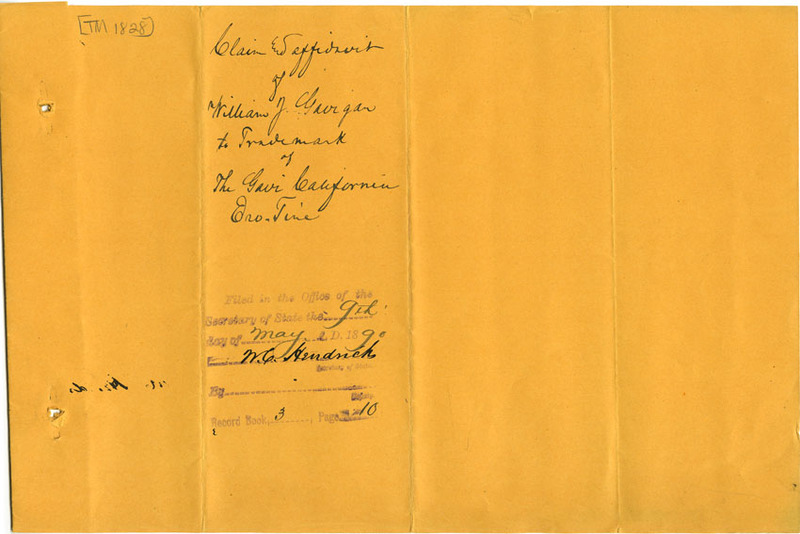 [TM 1828]
Claim & affidavit
of
William J. Gavigan
to Trademark
of
The Gavi California
Ero-Tine
Filed in the Office of the
Secretary of State the 9th
day of May A.D. 1890
W.C. Hendricks
Secretary of State
By
Deputy
Record Book 3, Page 10